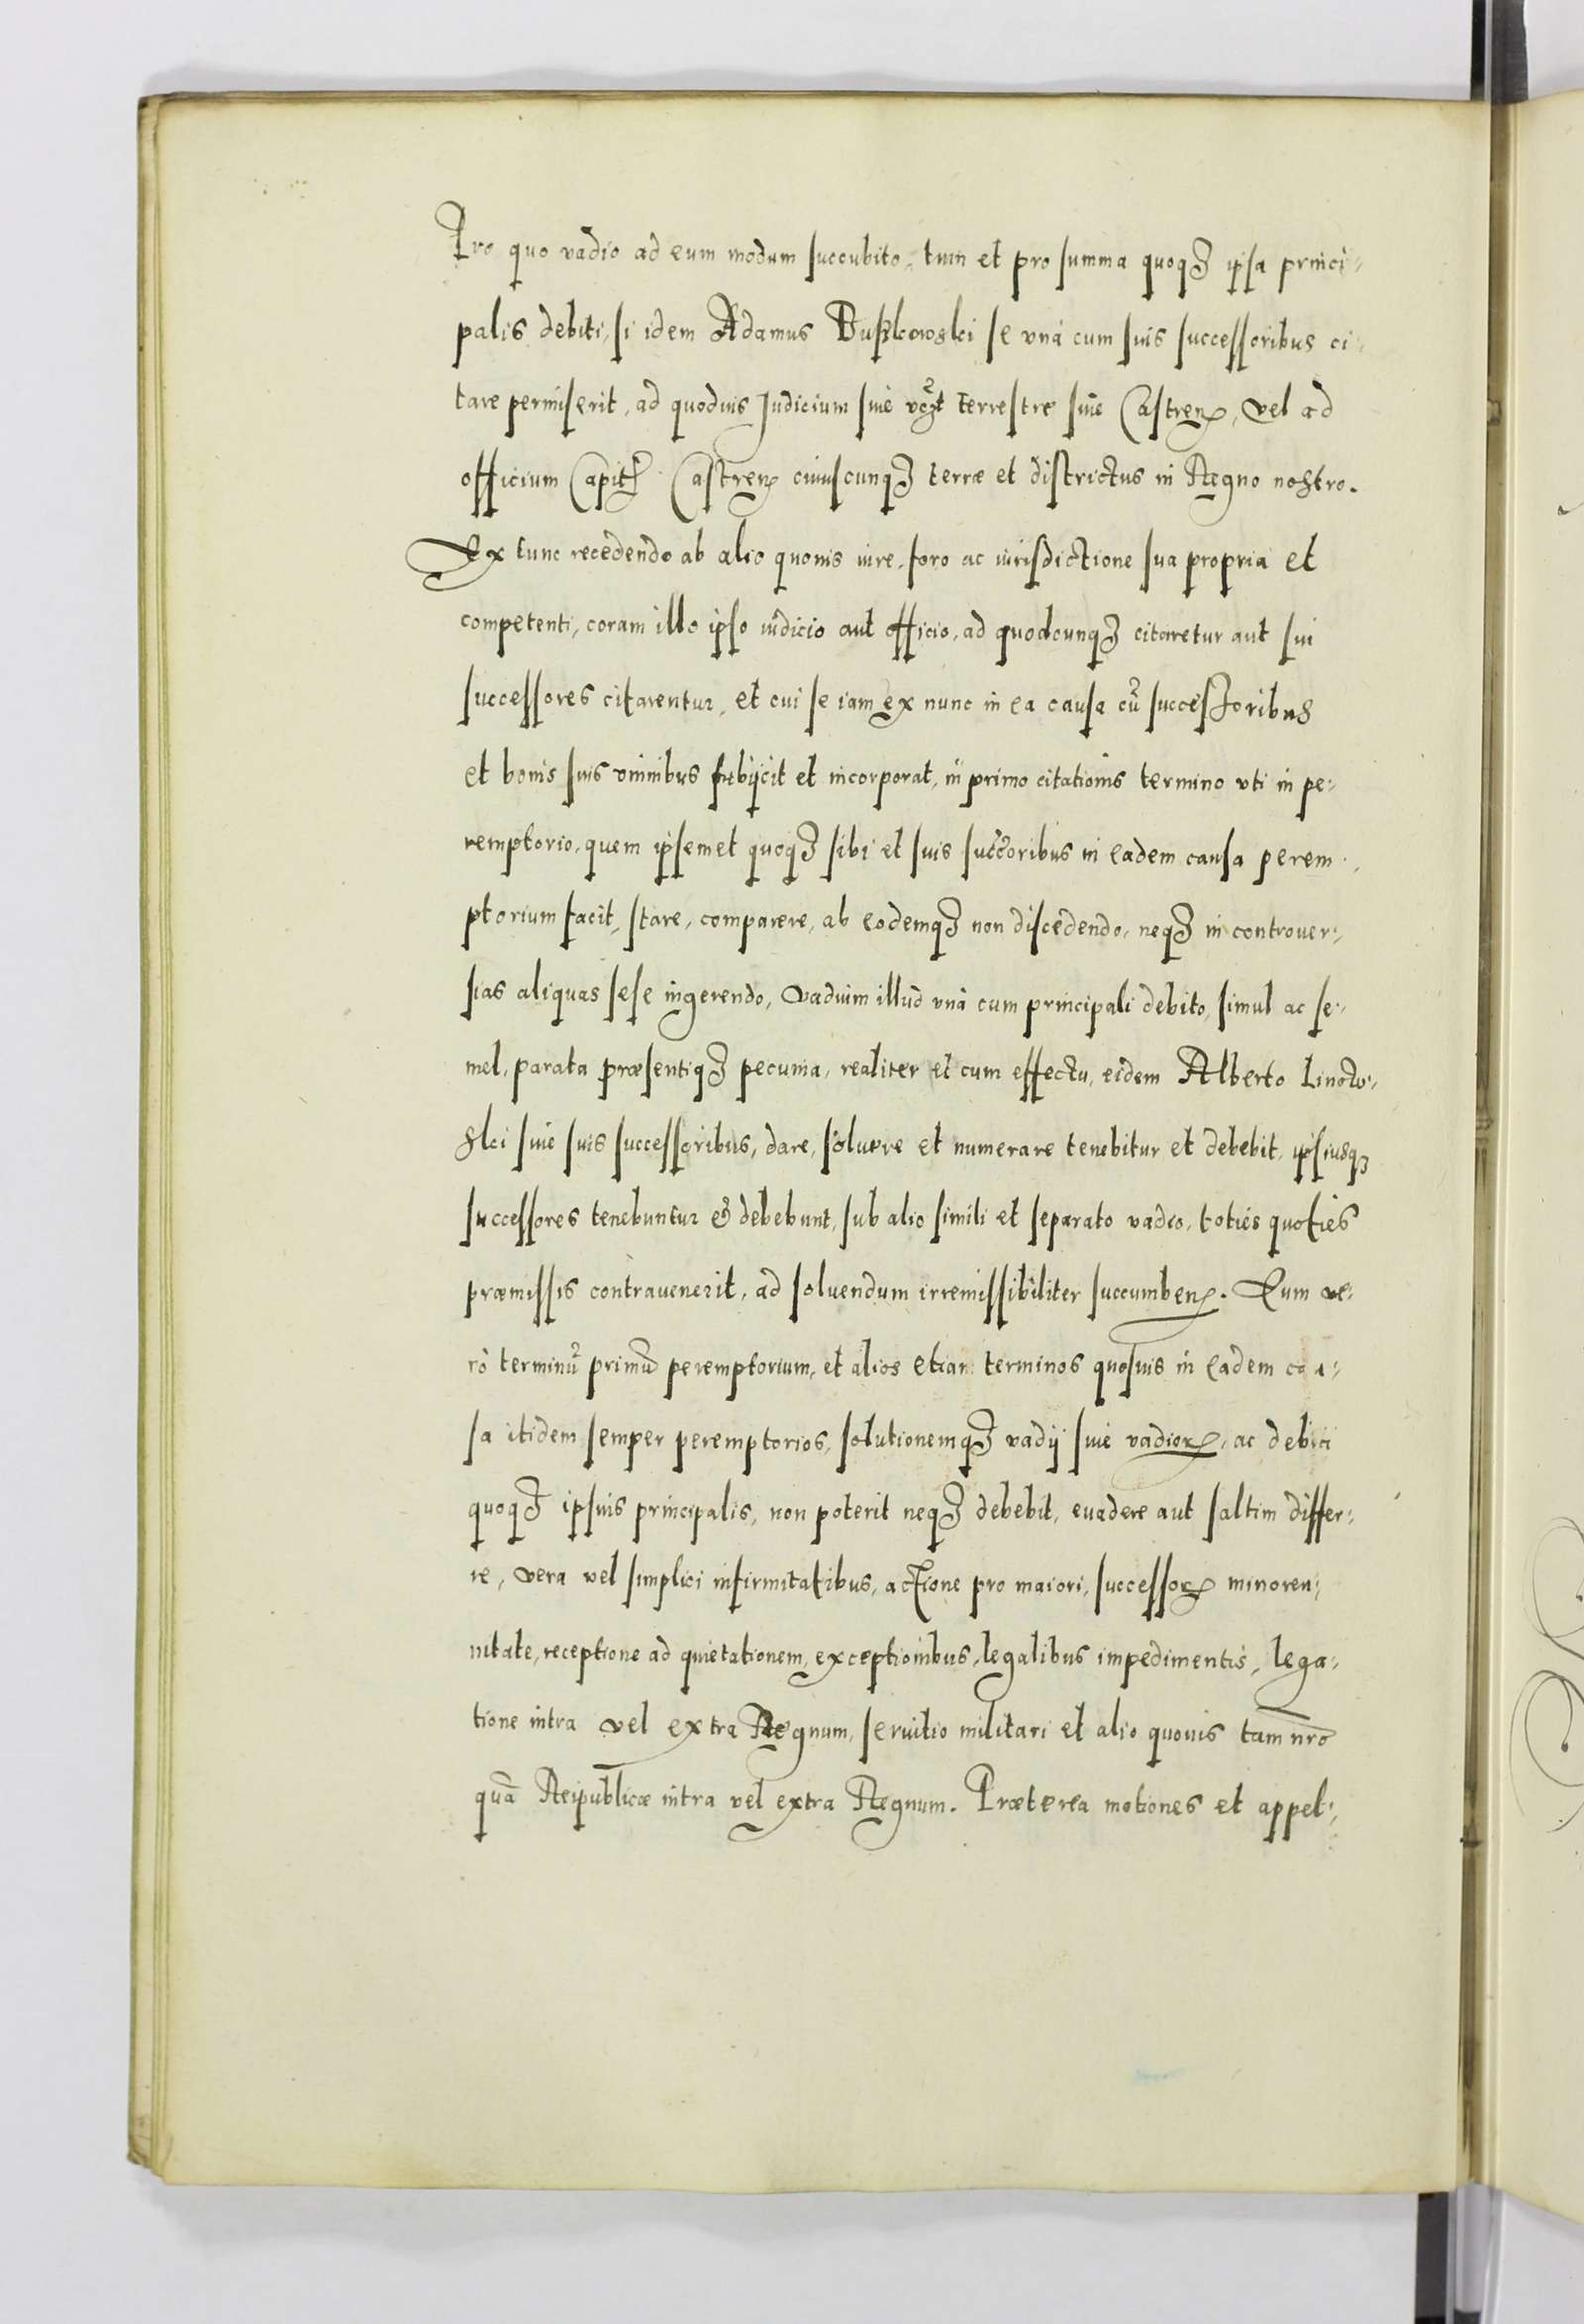 Pro quo vadio ad eum modum succubito, tum et pro summa quoq3 ipsa princi-
palis debiti, si idem Adamus Buszkowski se vnà cum suis successoribus ci-
tare permiserit, ad quoduis Judicium siue terrestre siue Castren, vel ad
officium Capit Castren cuiuscunq3 terræ et districtus in Regno nostro.
Ex tunc recedendo ab alio quouis iure, foro ac iurisdictione sua propria et
competenti, coram illo ipso iudicio aut officio, ad quodcunq3 citaretur aut sui
successores citarentur, et cui se iam ex nunc in ea causa cũ successoribus
et bonis suis omnibus subijcit et incorporat, in primo citationis termino vti in pe-
remptorio, quem ipsemet quoq3 sibi et suis succ̃oribus in eadem causa perem-
ptorium facit, stare, comparere, ab eodemq3 non discedendo, neq3 in controuer-
sias aliquas sese ingerendo, vadium illud vnà cum principali debito, simul ac se-
mel, parata præsentiq3 pecunia, realiter et cum effectu, eidem Alberto Linow-
ski siue suis successoribus, dare, soluere et numerare tenebitur et debebit, ipsiusq3
successores tenebuntur & debebunt, sub alio simili et separato vadio, toties quoties
præmissis contrauenerit, ad soluendum irremissibiliter succumben. Eum ve-
rò terminũ primũ peremptorium, et alios etiam terminos quosuis in eadem cau-
sa itidem semper peremptorios, solutionemq3 vadij siue vadiorꝝ, ac debiti
quoq3 ipsius principalis, non poterit neq3 debebit, euadere aut saltim differ-
re, vera vel simplici infirmitatibus, actione pro maiori, successorꝝ minoren-
nitate, receptione ad quietationem, exceptionibus, legalibus impedimentis, lega-
tione intra vel extra Regnum, seruitio militari et alio quouis tam nrõ
quã Reipublicæ intra vel extra Regnum. Præterea motiones et appel-